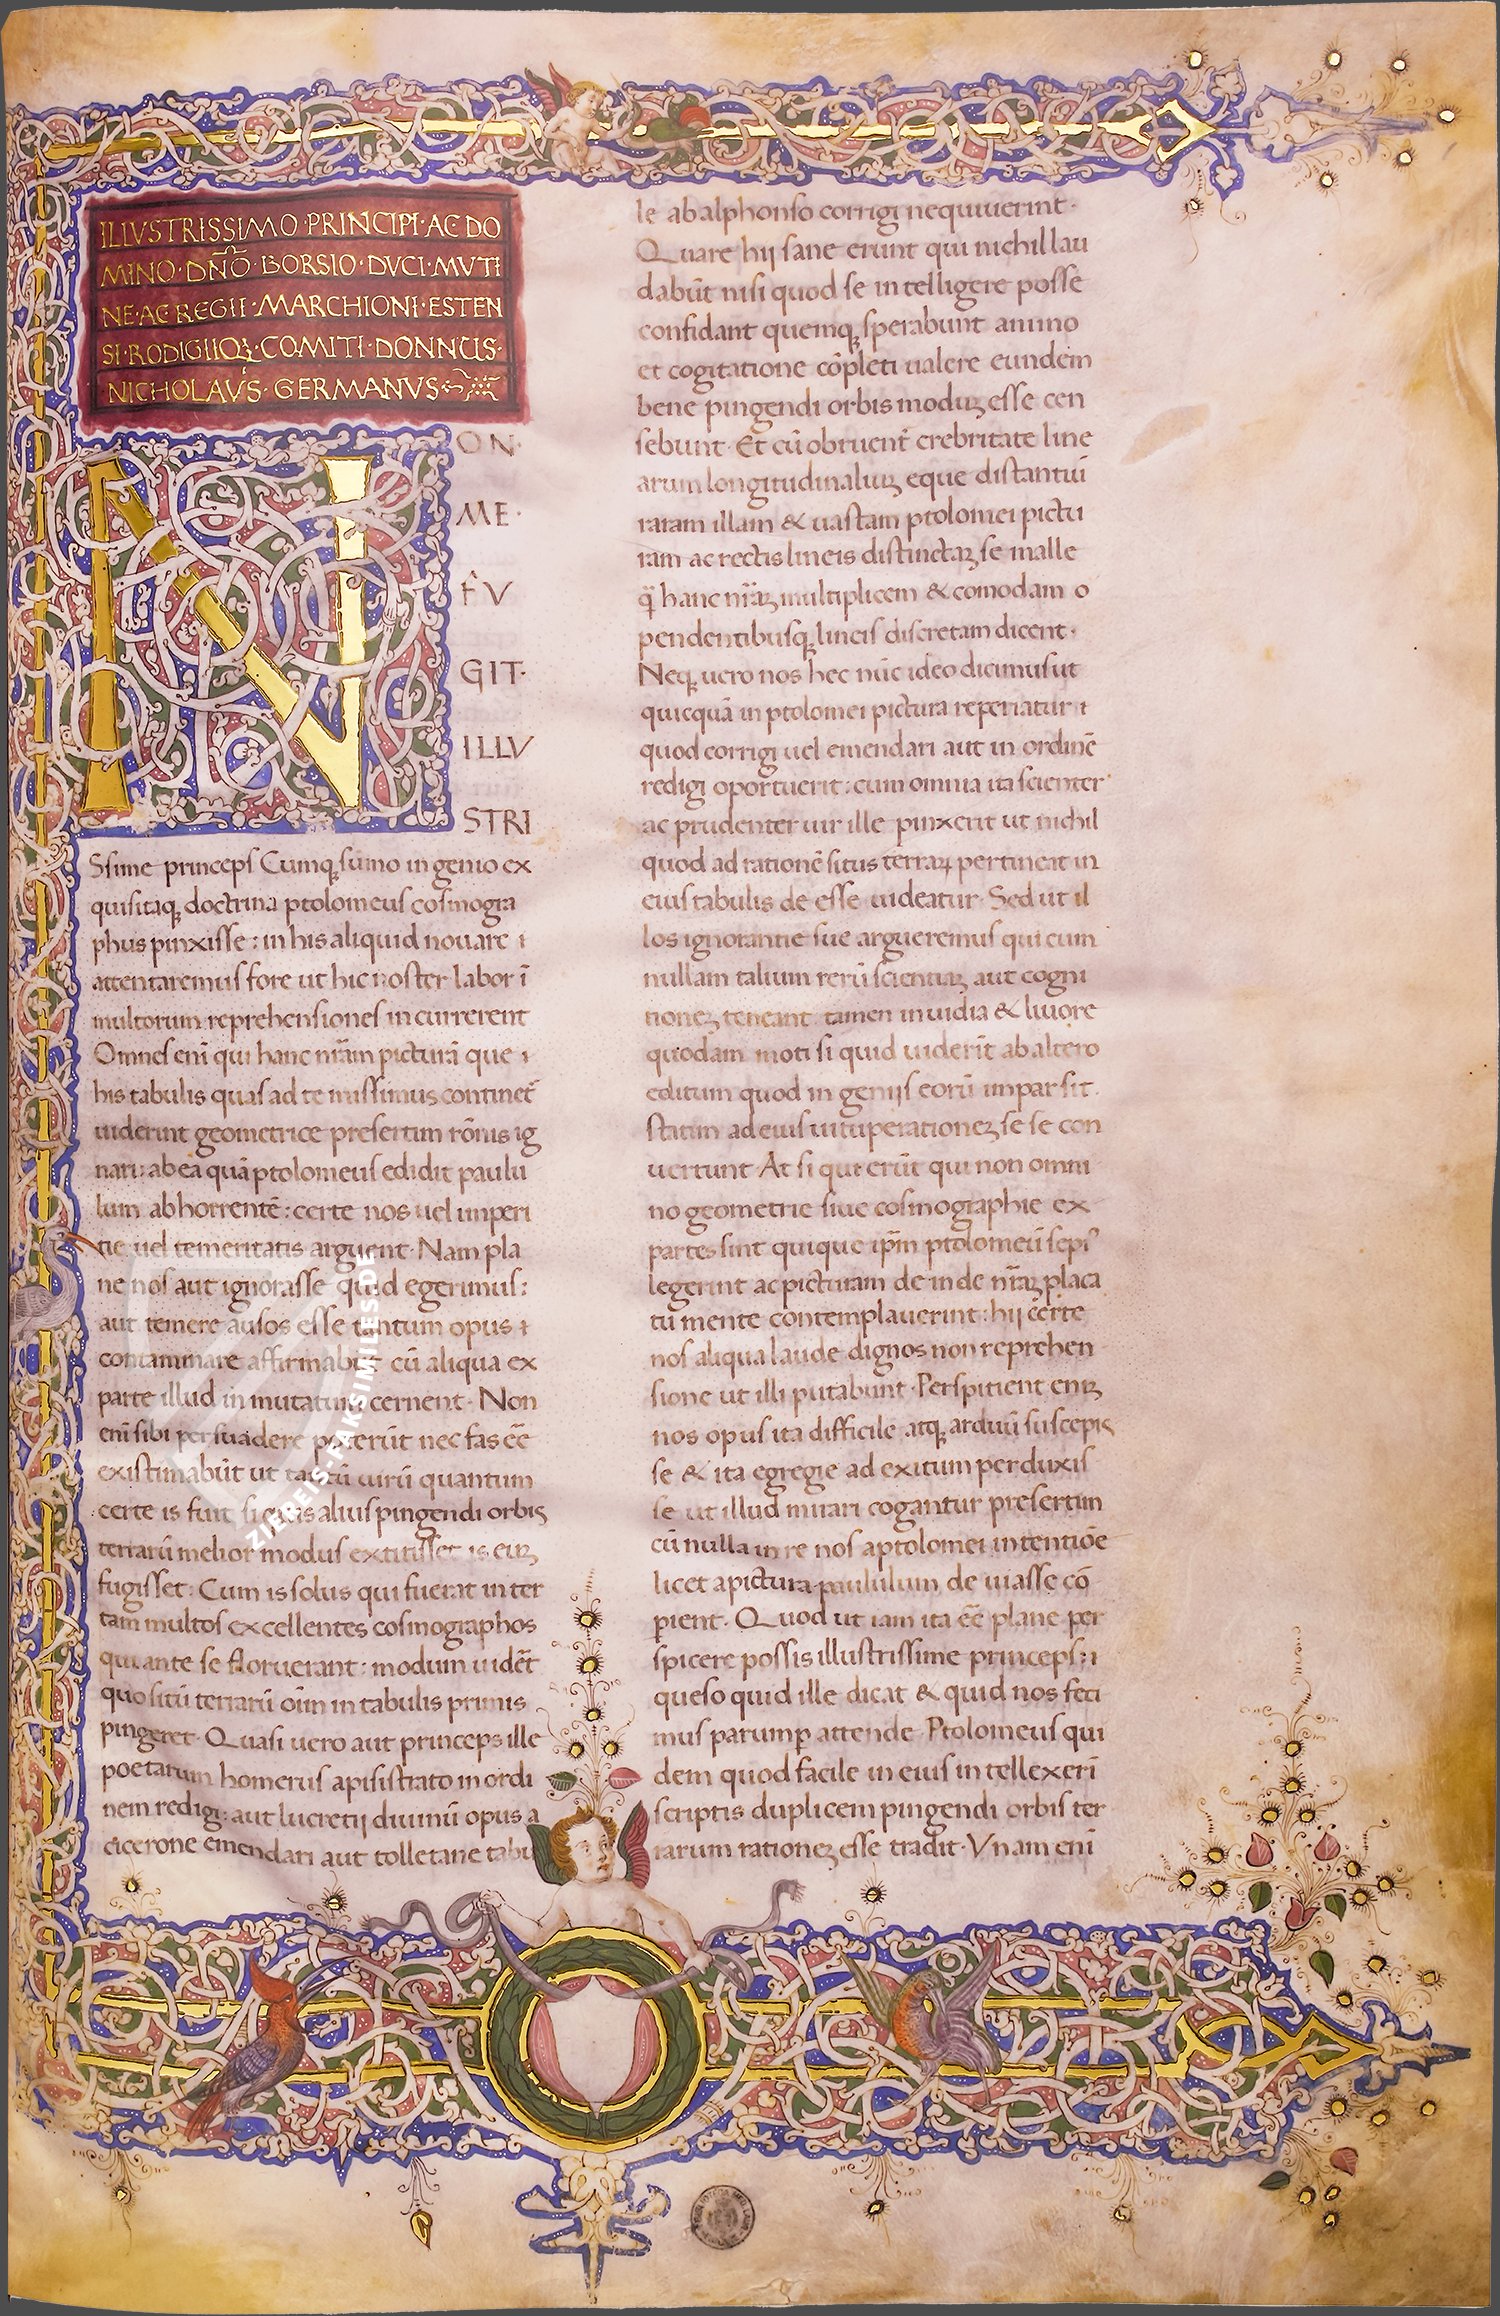 ILLVSTRISSIMO·PRINCIPI·AC DO
MINO·DÑO·BORSIO·DVCI·MVTI
NE·AC REGII·MARCHIONI·ESTEN
SI·RODIGIIQꝫ·COMITI·DONNUS·
NICHOLAVS·GERMANVS
NON·
ME·
FV
GIT·
ILLV
STRI
Ssime princeps Cumqꝫ sūmo ingenio ex
quisitaqꝫ doctrina ptolomeus cosmogra
phus pinxisse: in his aliquid nouare ı
attentaremus fore ut hic noster labor ī
multorum reprehensiones incurrerent
Omnes enī qui hanc nr̄am picturā que ı
his tabulis quas ad te missimus continet̄
uiderint geometrice presertim rōnis ig
nari: ab ea quā ptolomeus edidit paulu
lum abhorrentē: certe nos uel imperi
tie uel temeritatis arguent· Nam pla
ne nos aut ignorasse quid egerimus:
aut temere ausos esse tantum opus ı
contaminare affirmabūt cū aliqua ex
parte illud inmutatum cernent· Non
enī sibi persuadere poterūt nec fas eē
existimabūt ut tantū uirū quantum
certe is fuit si quis alius pingendi orbis
terrarū melior modus extitisset is eūꝫ
fugisset: Cum is solus qui fuerat inter
tam multos excellentes cosmographos
qui ante se floruerant: modum uidēt
quo sitū terrarū oīm in tabulis primis
pingeret· Quasi uero aut princeps ille
poetarum homerus apisistrato in ordi
nem redigi: aut lucretij diuinū opus a
cicerone emendari aut tolletane tabu
le ab alphonso corrigi nequiuerint·
Quare hij sane erunt qui nichil lau
dabūt nisi quod se intelligere posse
confidant quemqꝫ sperabunt animo
et cogitatione cōpleti ualere eundem
bene pingendi orbis moduꝫ esse cen
sebunt· Et cū obruent̄ crebritate line
arum longitudinaliuꝫ eque distantiū
raram illam & uastam ptolomei pictu
ram ac rectis lineis distinctaꝫ se malle
q̄ hanc nr̄aꝫ multiplicem & comodam o
pendentibusqꝫ lineis discretam dicent·
Neqꝫ uero nos hec nūc ideo dicimus ut
quicquā in ptolomei pictura reperiatur ı
quod corrigi uel emendari aut in ordinē
redigi oportuerit: cum omnia ita scienter
ac prudenter uir ille pinxerit ut nichil
quod ad rationē situs terraꝝ pertineat in
eius tabulis de esse uideatur· Sed ut il
los ignorantie sue argueremus qui cum
nullam talium rerū scientiaꝫ aut cogni
tioneꝫ teneant tamen inuidia & liuore
quodam moti si quid uiderīt ab altero
editum quod ingenijs eorū impar sit·
statim ad eius uituperationeꝫ se se con
uertunt· At si qui erūt qui non omni
no geometrie siue cosmographie ex
partes sint quique ip̄m ptolomeū sepi᾽
legerint ac picturam deinde nr̄aꝫ placa
tū mente contemplauerint: hij certe
nos aliqua laude dignos non reprehen
sione ut illi putabunt· Perspitient eniꝫ
nos opus ita difficile atqꝫ arduū suscepis
se & ita egregie ad exitum perduxis
se ut illud mirari cogantur presertim
cū nulla in re nos a ptolomei intentiōe
licet a pictura paululum de uiasse cō
perient· Quod ut iam ita eē plane per
spicere possis illustrissime princeps: ı
queso quid ille dicat & quid nos feci
mus parumper attende· Ptolomeus qui
dem quod facile in eius intellexeri
scriptis duplicem pingendi orbis ter
rarum rationeꝫ esse tradit· Vnam enī
ZIEREIS-FAKSIMILES.DE